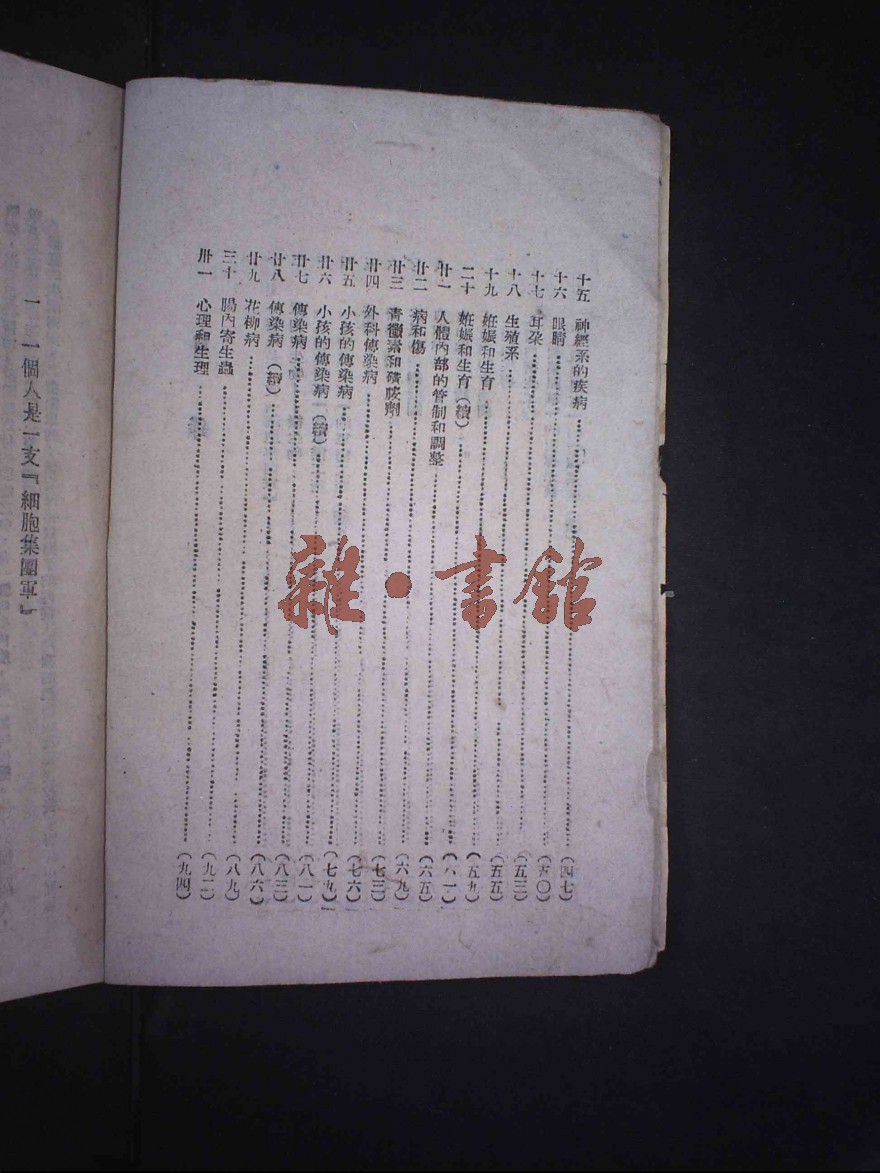 十五 神經系的疾病(四七)
十六 眼睛(五〇)
十七 耳朶(五三)
十八 生殖系(五五)
十九 姙娠和生育(五九)
二十 姙娠和生育(續)(六一)
廿一 人體內部的管制和調整(六五)
廿二 病和傷(六九)
廿三 青黴素和磺胺劑(七三)
廿四 外科傳染病(七六)
廿五 小孩的傳染病(七九)
廿六 小孩的傳染病(續)(八一)
廿七 傳染病(八三)
廿八 傳染病(續)(八六)
廿九 花柳病(八九)
三十 腸內寄生蟲(九二)
卅一 心理和生理(九四)
雜·書館
一 一個人是一支『細胞集團軍』